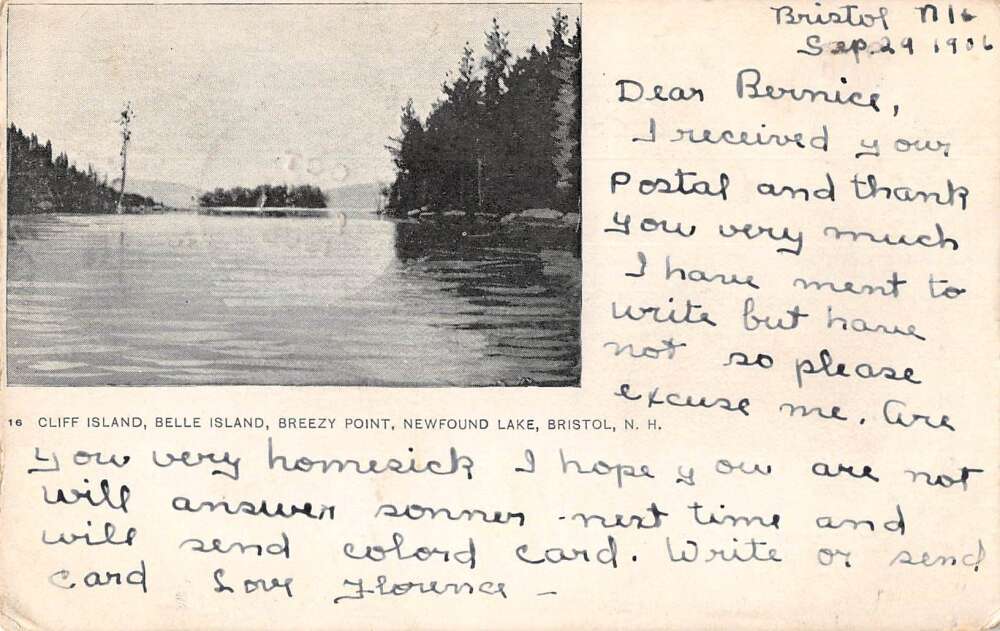 Bristol N H
Sep. 29 1906
Dear Bernice,
I received your
Postal and thank
you very much
I have ment to
write but have
not so please
excuse me. Are
16 CLIFF ISLAND, BELLE ISLAND, BREEZY POINT, NEWFOUND LAKE, BRISTOL, N. H.
you very homesick I hope you are not
will answer sonner next time and
will send colord card. Write or send
card Love Florence -